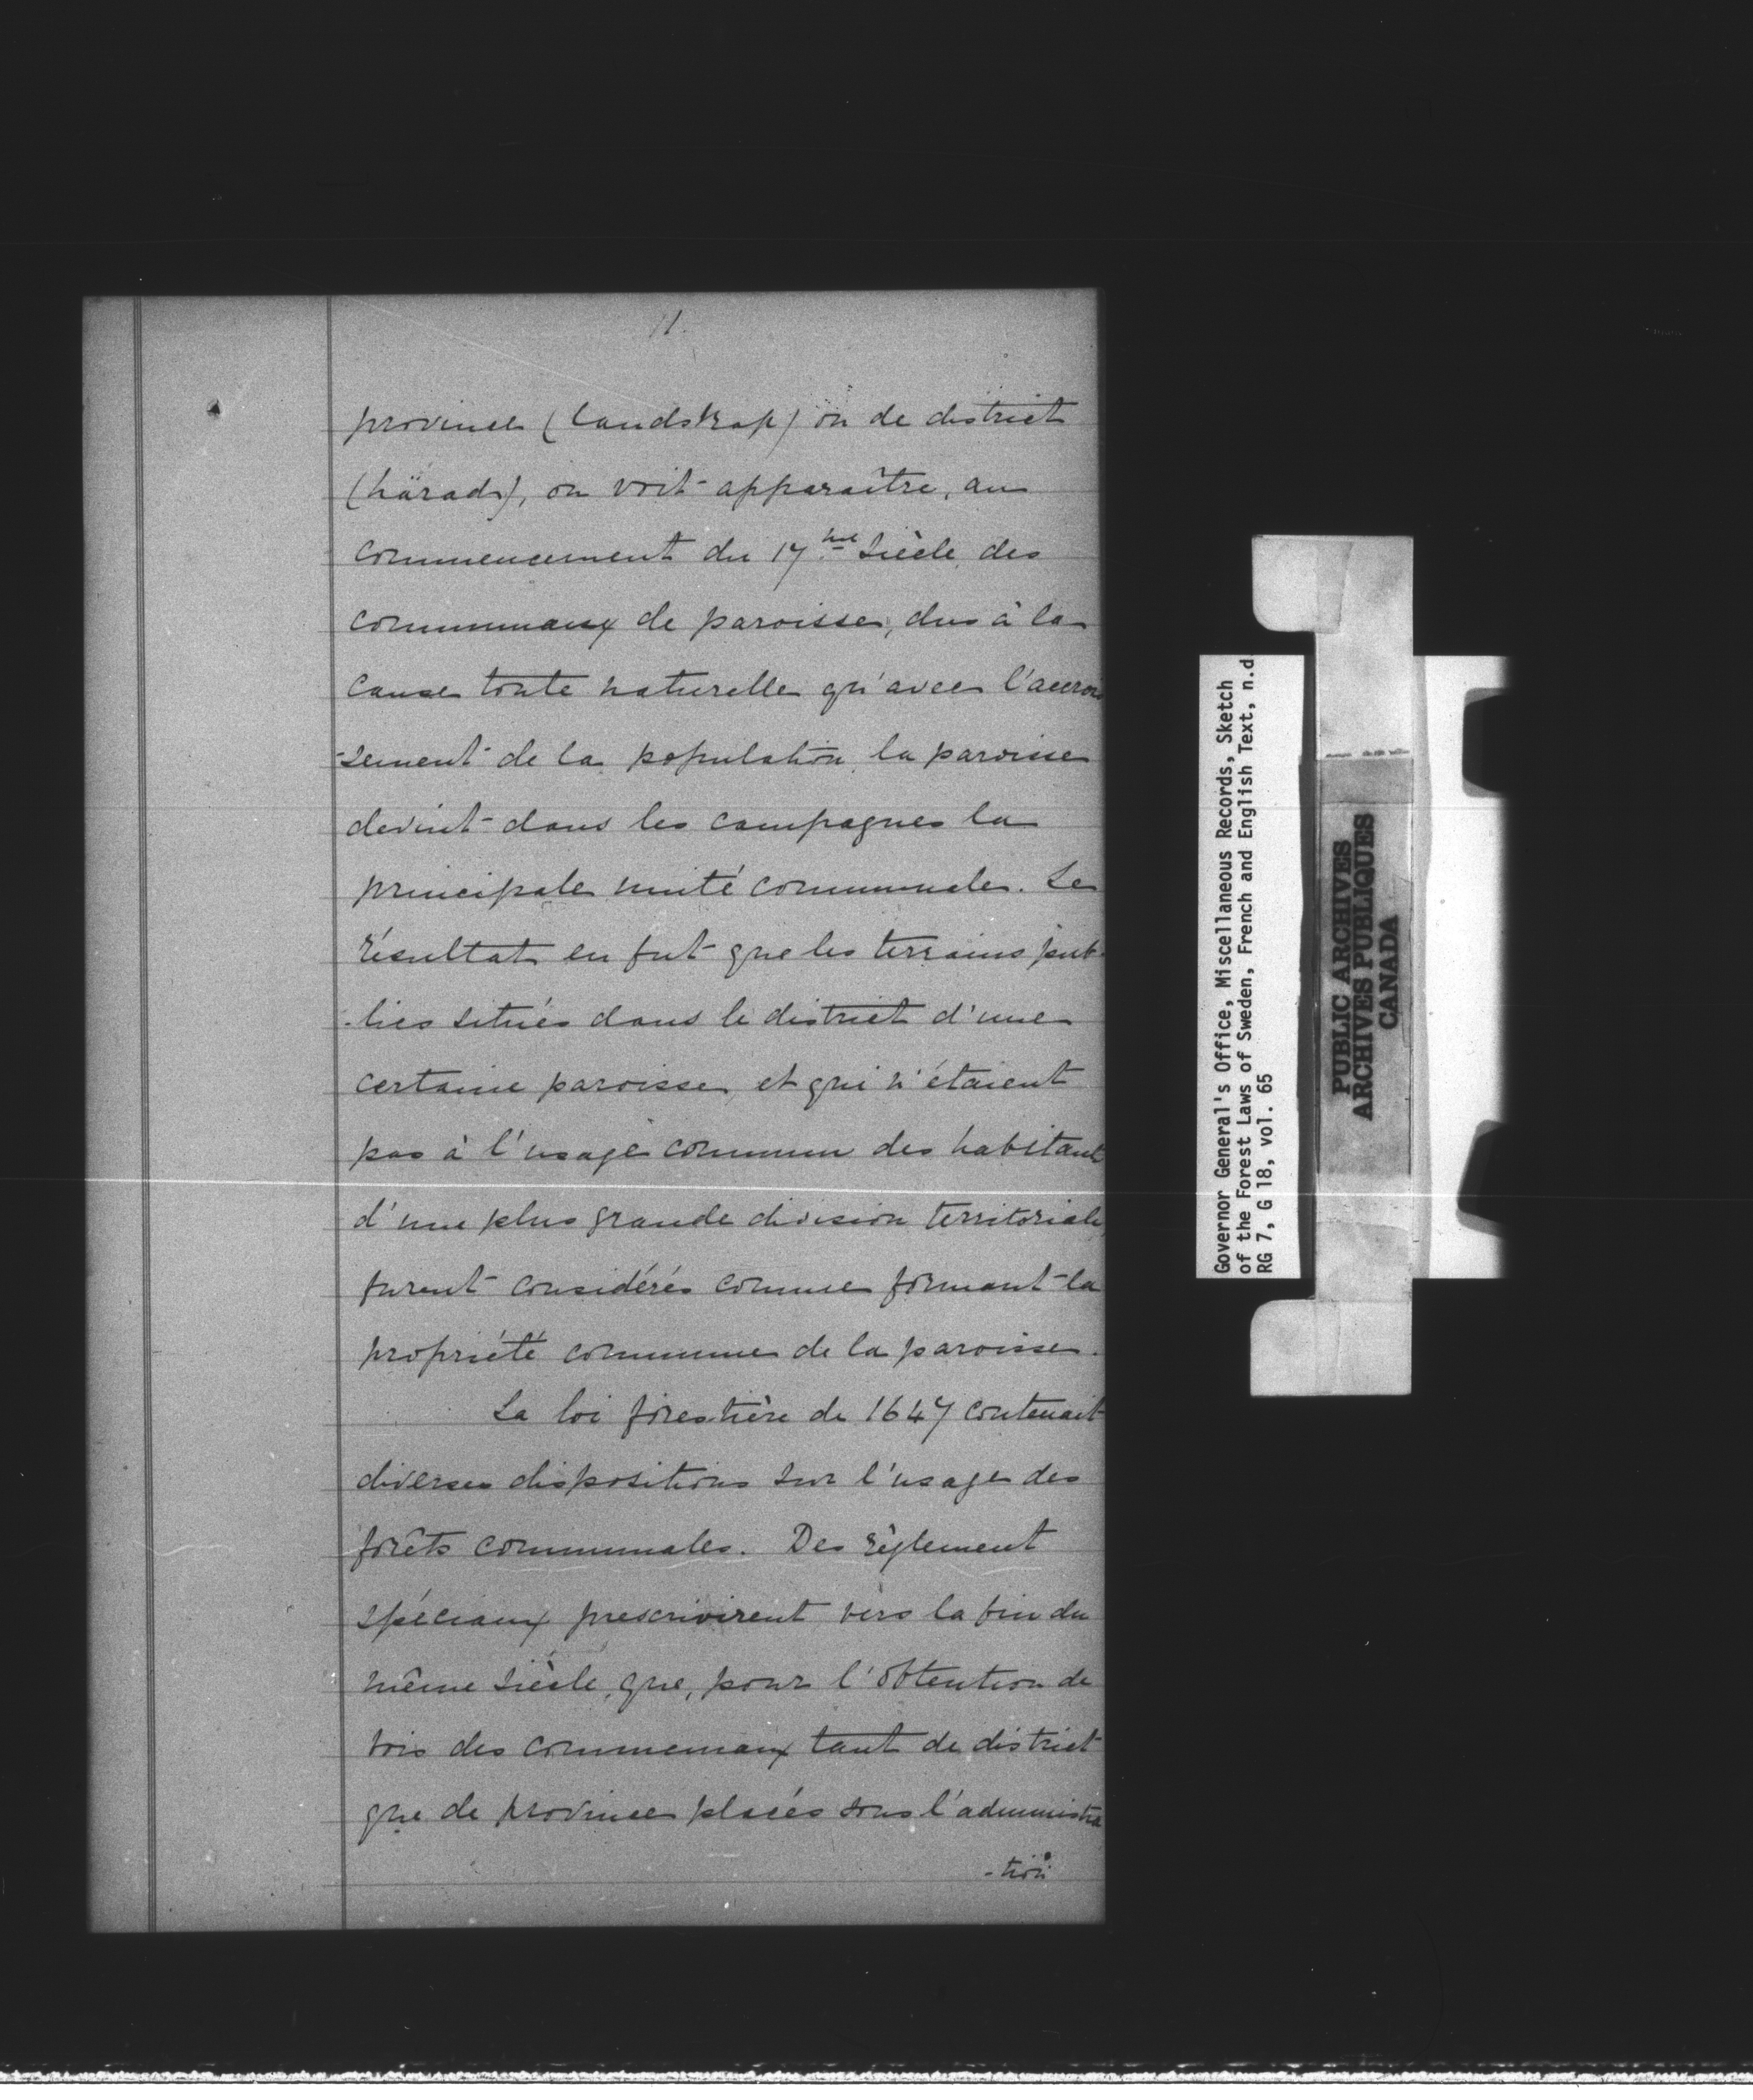 11.
province (landskap) ou de district
(härad), on voit apparaître, au
commencement du 17me siècle, des
communaux de paroisse, dus à la
cause toute naturelle qu'avec l'accrois
-sement de la population, la paroisse
devint dans les campagnes la
principale unité communale. Le
résultat en fut que les terrains pub-
-lics situés dans le district d'une
certaine paroisse, et qui n'étaient
pas à l'usage commun des habitants
d'une plus grande division territoriale
furent considérés comme formant la
propriété commune de la paroisse.
La loi forestière de 1647 contenait
diverses dispositions sur l'usage des
forêts communales. Des règlement
spéciaux prescrivirent vers la fin du
même siècle, que, pour l'obtention de
bois des communaux tant de district
que de province placés sous l'administra
-tion
Governor General's Office, Miscellaneous Records, Sketch
of the Forest Laws of Sweden, French and English Text, n.d
RG 7, G 18, vol. 65
PUBLIC ARCHIVES
ARCHIVES PUBLIQUES
CANADA